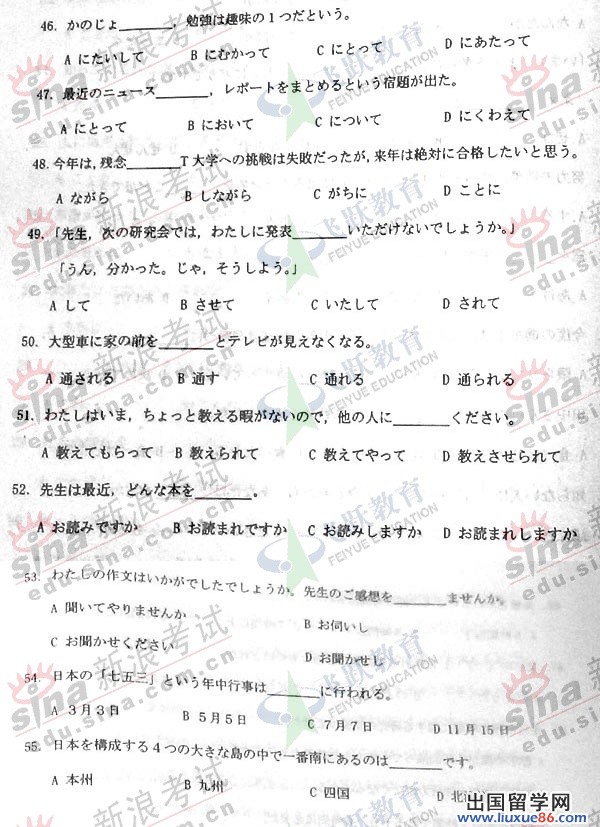 46. かのじょ______，勉強は趣味の１つだという。
A にたいして B にむかって C にとって D にあたって
47. 最近のニュース______，レポートをまとめるという宿題が出た。
A にとって B において C について D にくわえて
48. 今年は，残念______T大学への挑戦は失敗だったが，来年は絶対に合格したいと思う。
A ながら B しながら C がちに D ことに
49. 「先生，次の研究会では，わたしに発表______いただけないでしょうか。」
「うん，分かった。じゃ，そうしよう。」
A して B させて C いたして D されて
50. 大型車に家の前を______とテレビが見えなくなる。
A 通される B 通す C 通れる D 通られる
51. わたしはいま，ちょっと教える暇がないので，他の人に______ください。
A 教えてもらって B 教えられて C 教えてやって D 教えさせられて
52. 先生は最近，どんな本を______。
A お読みですか B お読まれですか C お読みしますか D お読まれしますか
53. わたしの作文はいかがでしたでしょうか。先生のご感想を______ませんか。
A 聞いてやりませんか B お伺いし
C お聞かせください D お聞かせし
54. 日本の「七五三」という年中行事は______に行われる。
A ３月３日 B ５月５日 C ７月７日 D 11月15日
55. 日本を構成する４つの大きな島の中で一番南にあるのは______です。
A 本州 B 九州 C 四国 D 北
sina 新浪考试
edu.sina.com.cn
飞跃教育
FEIYUE EDUCATION
出国留学网
www.liuxue86.com